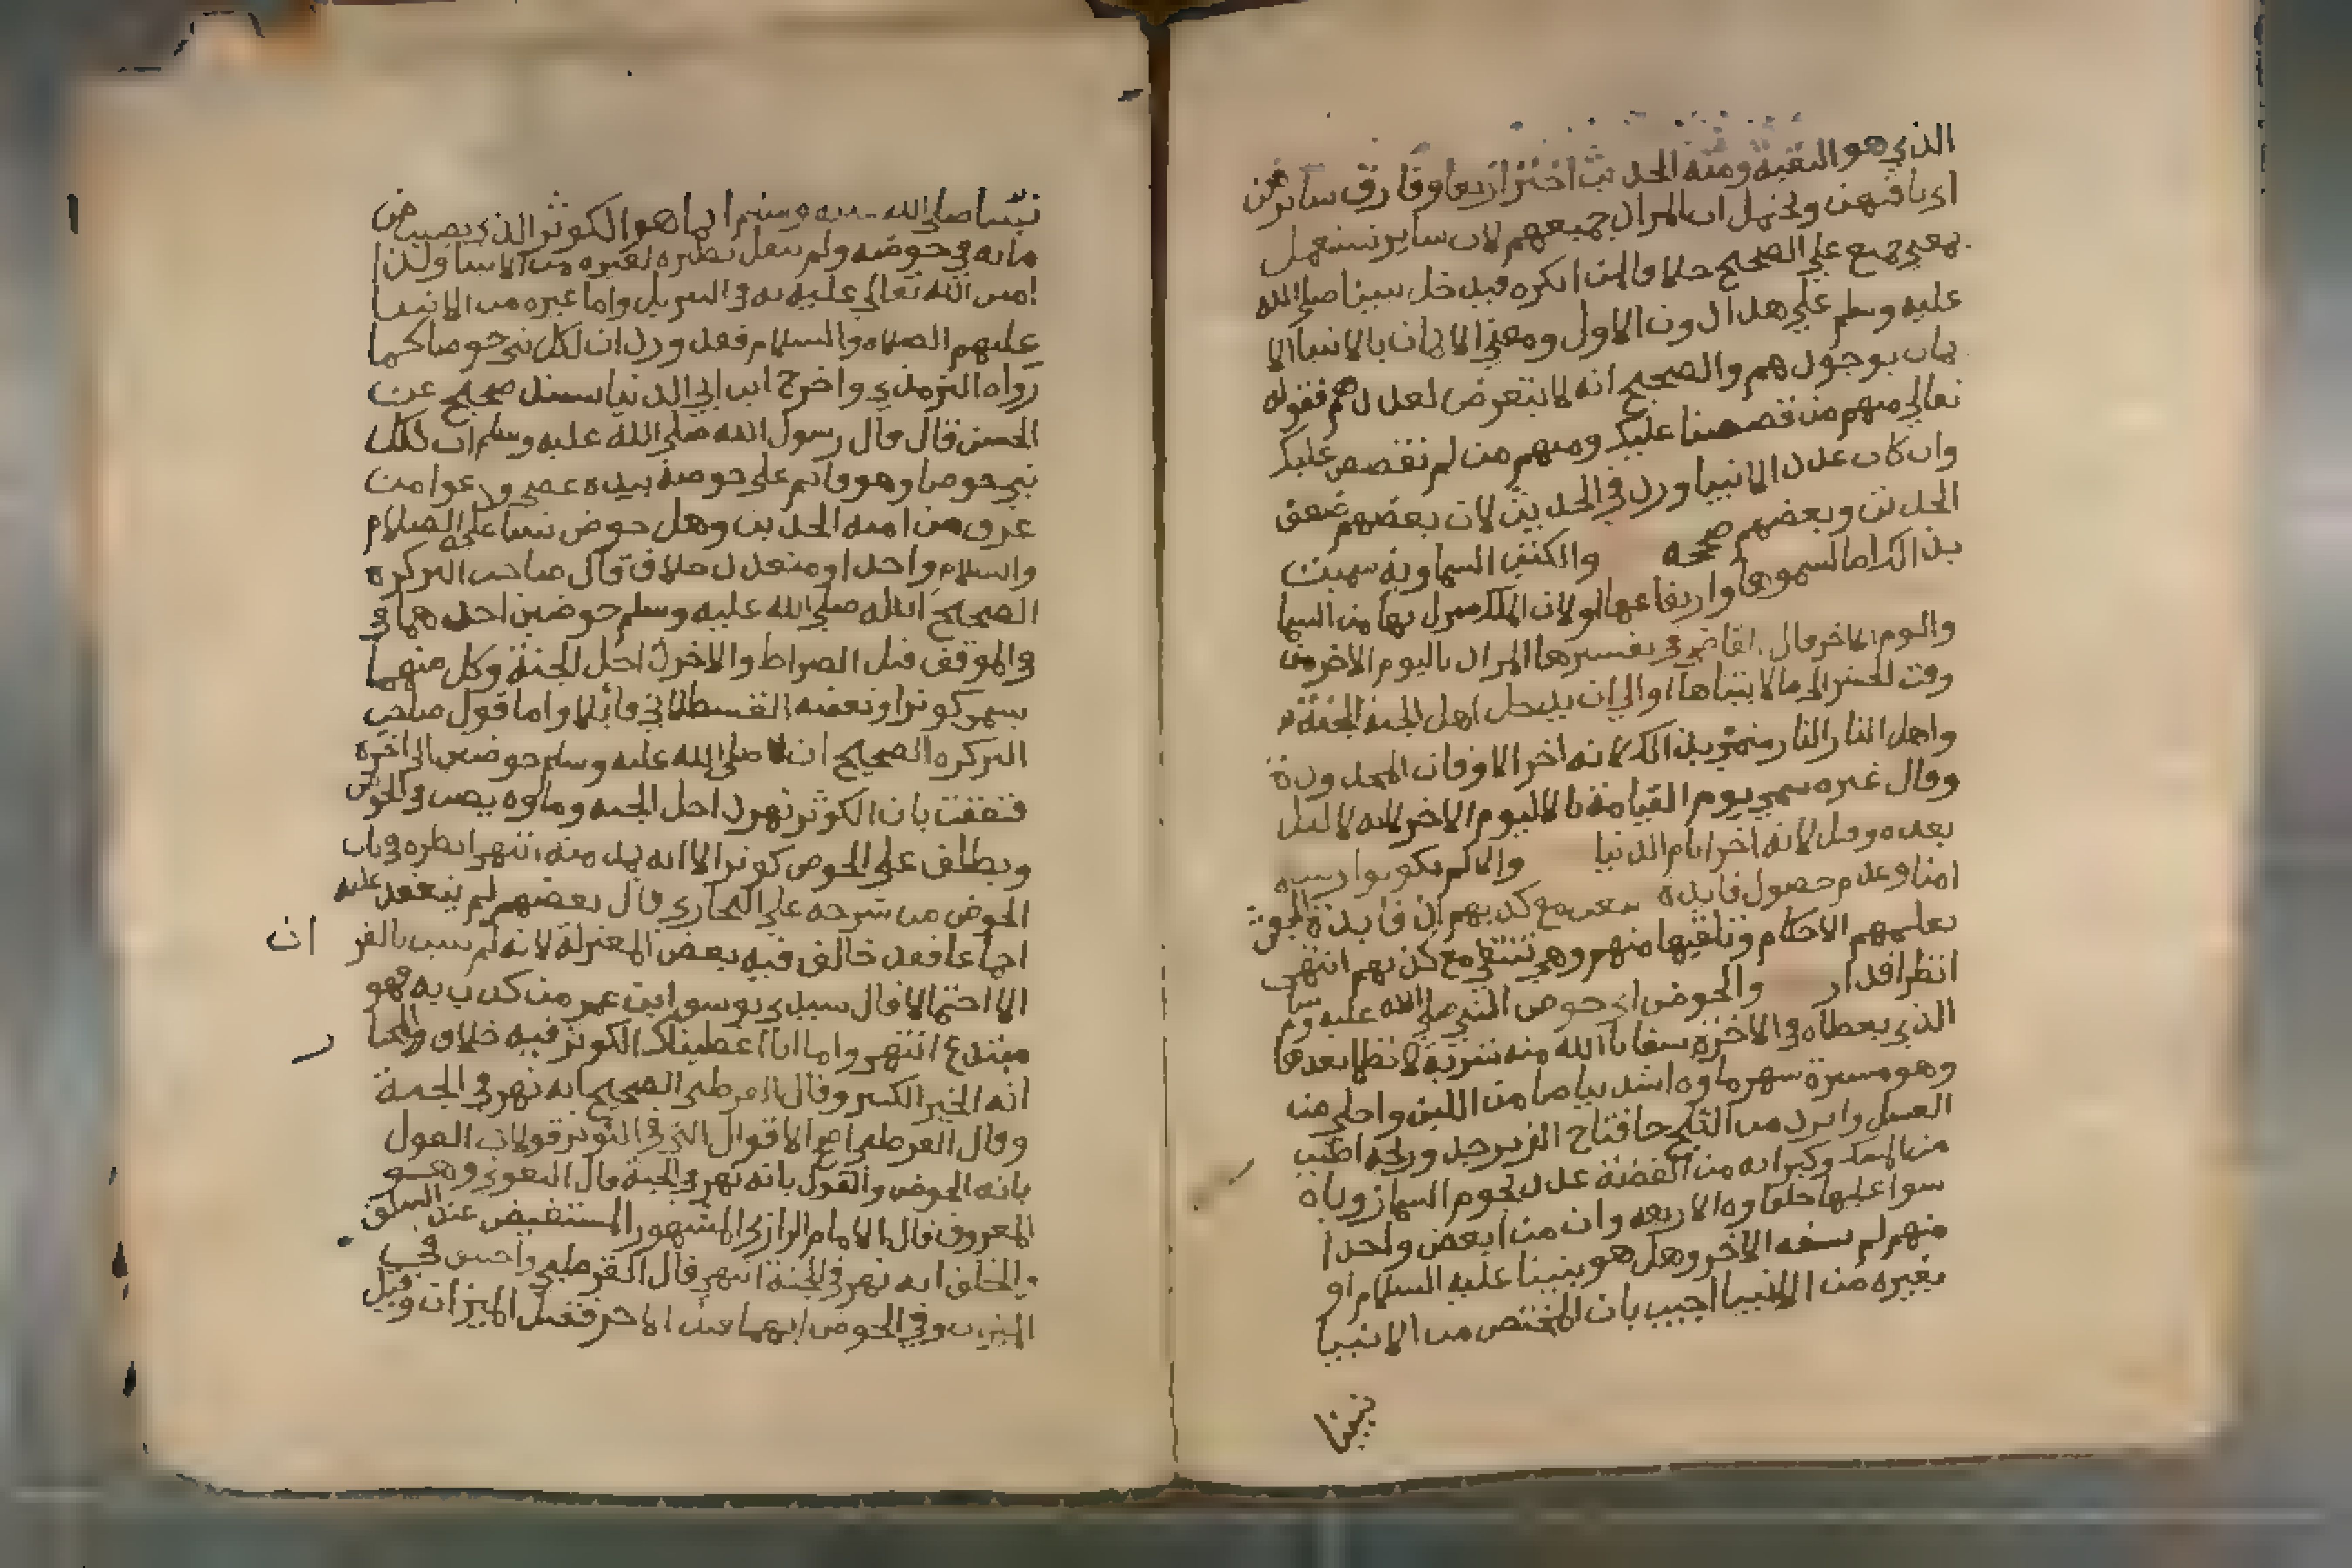 الذي هو البقية ومنه الحديث اختر اربعا وفارق سايرهن
اي باقيهن ويحتمل ان المراد جميعهم لان ساير تستعمل
بمعني جميع علي الصحيح خلافا لمن انكره فيدخل نبينا صلي الله
عليه وسلم علي هذا دون الاول ومعني الايمان بالانبيا الا
يمان بوجودهم والصحيح انه لا يتعرض لعددهم فقوله
تعالي منهم من قصصنا عليك ومنهم من لم نقصص عليك
وان كان عدد الانبيا ورد في الحديث لان بعضهم ضعف
الحديث وبعضهم صححه والكتب السماوية سميت
بذلك اما لسموها وارتفاعها او لان الملك نزل بها من السما
واليوم الاخر قال القاضي في تفسيرها المراد باليوم الاخر من
وقت الحشر الي ما لا يتناها او الي ان يدخل اهل الجنة الجنة
واهل النار النار سمي بذلك لانه اخر الاوقات المحدودة
وقال غيره سمي يوم القيامة باليوم الاخر لانه لا ليل
بعده وقيل لانه اخر ايام الدنيا والا لم يكونوا
امنا وعدم حصول فايدة مع كذبهم اذ فايدة
تعليمهم الاحكام وتلقيها منهم وهي تنتفي مع كذبهم انتهي
انظر اقدار والحوض اي حوض النبي صلي الله عليه وسلم
الذي يعطاه في الاخرة سقانا الله منه شربة لا نظما بعدها
وهو مسيرة شهر ماوه اشد بياضا من اللبن واحلي من
العسل وابرد من الثلج حافتاه الزبرجد وريحه اطيب
من المسك وكيزانه من الفضة عدد نجوم السما زواياه
سوا عليها خلفاوه الاربعة وان من ابغض واحدا
منهم لم يسقه الاخر وهل هو بنبينا عليه السلام او
بغيره من الانبيا اجيب بان المختص من الانبيا
نبينا
نبينا صلي الله عليه وسلم انما هو الكوثر الذي يصب من
مايه في حوضه ولم ينقل نظيره لغيره من الانبيا ولذا
امتن الله تعالي عليه به في التنزيل واما غيره من الانبيا
عليهم الصلاة والسلام فقد ورد ان لكل نبي حوضا كما
رواه الترمذي واخرج ابن ابي الدنيا بسند صحيح عن
الحسن قال قال رسول الله صلي الله عليه وسلم ان لكل
نبي حوضا وهو قايم علي حوضه بيده عصي يدعوا من
عرف من امته الحديث وهل حوض نبينا عليه الصلاة
والسلام واحد او متعدد خلاف قال صاحب التذكرة
الصحيح ان له صلي الله عليه وسلم حوضين احدهما في
في الموقف قبل الصراط والاخر داخل الجنة وكل منهما
يسمي كوثرا وتعقبه القسطلاني قائلا واما قول صاحب
التذكرة الصحيح ان له صلي الله عليه وسلم حوضين الي اخره
فتعقب بان الكوثر نهر داخل الجنة وماوه يصب في الحوض
ويطلق علي الحوض كوثرا لانه يمد منه انتهي انظره في باب
الحوض من شرحه علي البخاري قال بعضهم لم ينعقد عليه
اجماعا فقد خالف فيه بعض المعتزلة لانه لم يثبت بالقر
ان
الا احتمالا قال سيدي يوسف ابن عمر من كذب به فهو
مبتدع انتهي واما انا اعطيناك الكوثر فيه خلاف والمختا
ر
انه الخير الكثير وقال القرطبي الصحيح انه نهر في الجنة
وقال القرطبي اصح الاقوال التي في الكوثر قولان القول
بانه الحوض والقول بانه نهر في الجنة قال البغوي وهو
المعروف قال الامام الرازي المشهور المستفيض عند السلف
والخلف انه نهر في الجنة انتهي قال القرطبي واختلف في
الميزان وفي الحوض ايهما قبل الاخر فقيل الميزان وقيل